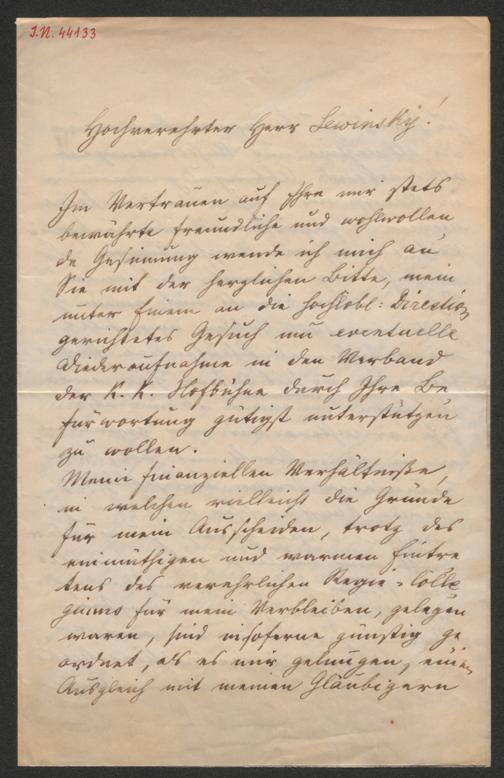 I.N. 44133
Hochverehrter Herr Lewinsky!
Im Vertrauen auf Ihre mir stets
bewährte freundliche und wohlwollen
de Gesinnung wende ich mich an
Sie mit der herzlichen Bitte, mein
unter Einem an die hochlobl: Direction
gerichtetes Gesuch um eventuelle
Wiederaufnahme in den Verband
der K. K. Hofbühne durch Ihre Be
fürwortung gütigst unterstützen
zu wollen.
Meine finanziellen Verhältnisse,
in welchen vielleicht die Gründe
für mein Ausscheiden, trotz des
einmüthigen und warmen Eintre
tens des verehrlichen Regie-Colle
giums für mein Verbleiben, gelegen
waren, sind insoferne günstig ge
ordnet, als es mir gelungen, einen
Ausgleich mit meinen Gläubigern